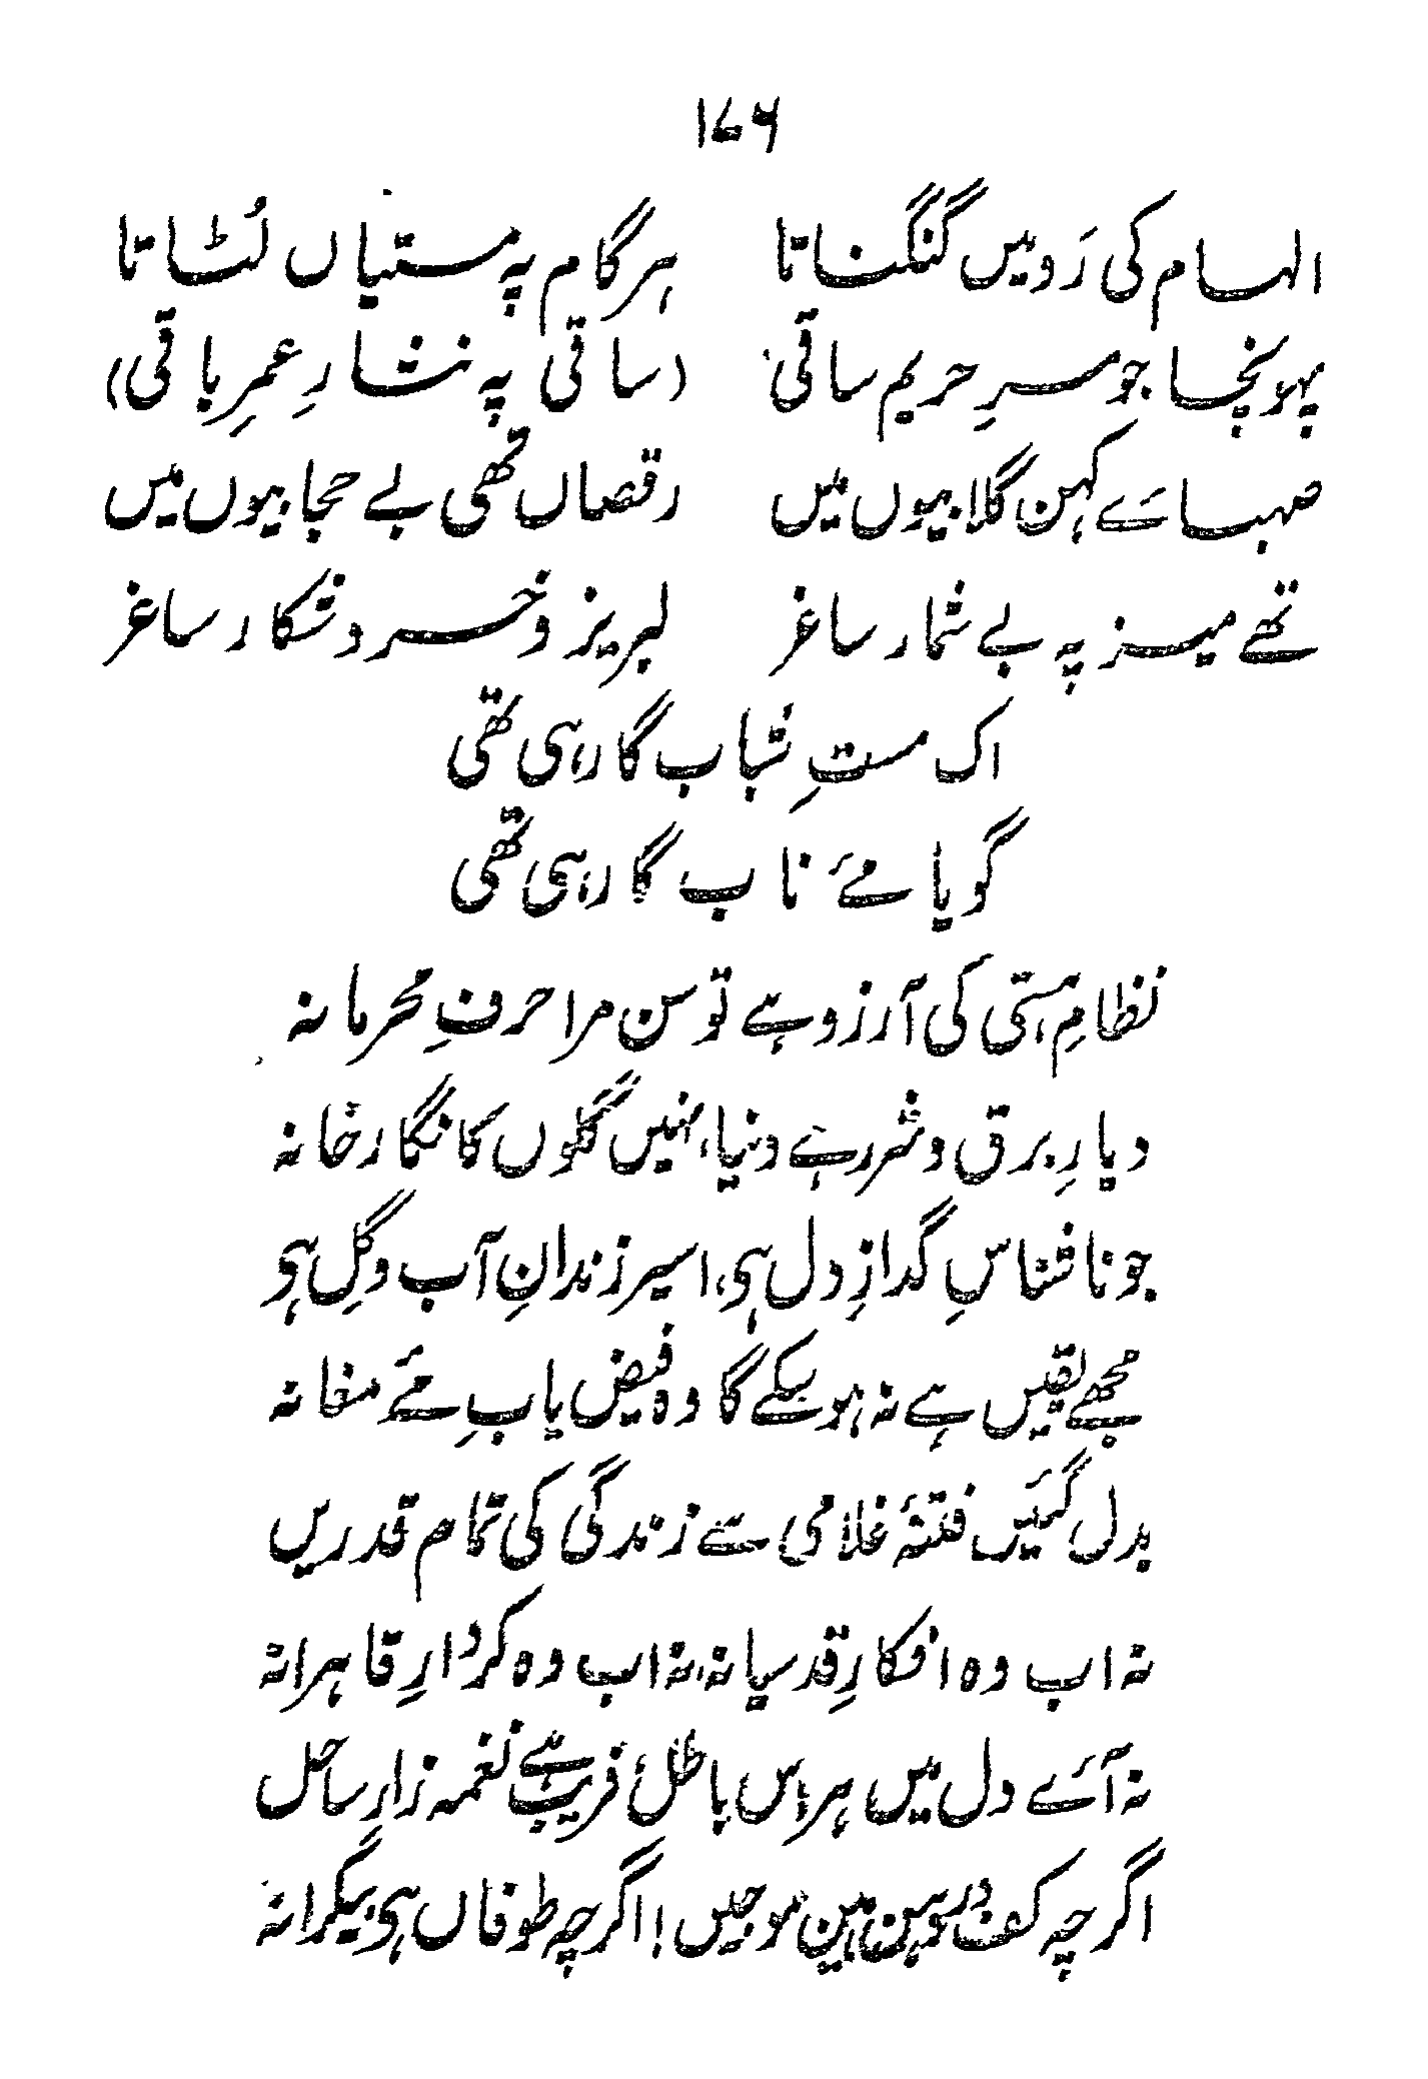 ۱۷۶
الہام کی رَو میں گنگناتا ہر گام پہ مستیاں لُٹاتا
پہونچا جو سرِ حریم ساقی (ساقی پہ نثارِ عمرِ باقی)
صہبائے کہن گلابیوں میں رقصاں تھی بے حجابیوں میں
تھے میز پہ بے شمار ساغر لبریز و خرد شکار ساغر
اک مستِ شباب گا رہی تھی
گویا مئے ناب گا رہی تھی
نظامِ ہستی کی آرزو ہے تو سن مرا حرفِ محرمانہ
دیارِ برق و شرر ہے دنیا، نہیں گلوں کا نگار خانہ
جو نا شناسِ گدازِ دل ہی، اسیر زندانِ آب و گِل ہی
مجھے یقیں ہے نہ ہو سکے گا وہ فیض یابِ مئے مغانہ
بدل گئیں فتنۂ غلامی سے زندگی کی تمام قدریں
نہ اب وہ افکارِ قدسیانہ، نہ اب وہ کردارِ قاہرانہ
نہ آئے دل میں ہراس باطل فریب ہے نغمہ زارِ ساحل
اگرچہ کف ہیں موجیں! اگرچہ طوفاں ہی بیکرانہ